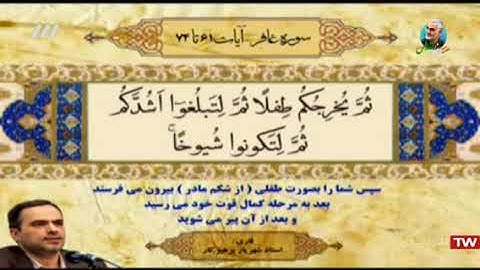 سوره غافر - آیات ۶۱ تا ۷۴
ثُمَّ يُخْرِجُكُمْ طِفْلًا ثُمَّ لِتَبْلُغُوٓا۟ أَشُدَّكُمْ
ثُمَّ لِتَكُونُوا۟ شُيُوخًا ۚ
سپس شما را بصورت طفلی ( از شکم مادر ) بیرون می فرستد
بعد به مرحله کمال قوت خود می رسید
و بعد از آن پیر می شوید
قاری:
استاد شهریار پرهیزگار
TW